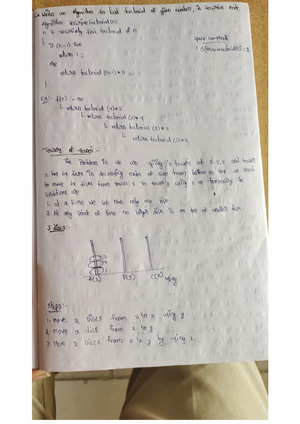 Write an algorithm to find factorial of given number, in recursive mode
Algorithm recursivefactorial(n)
// recursively find factorial of n
{
if (n=1) then
return 1;
else
return factorial(n-1)*n ;
}
space complexity
Ex:- f(5) :- 120
return factorial (4)*5
return factorial (3)*4
return factorial (2)*3
return factorial (1)*2
Towers of Hanoi:-
The problem is we are giving 3 towers x, y, z and tower
x has n disks in decreasing order of size from bottom to top we need
to move the disks from tower x to tower
conditions are
1. at a time we can move only one disk
2. At any point of time no bigger disk is on top of smaller disk.
3 Discs:-
A(x) B(y) C(z) using
steps:-
1. Move 2 discs from x to z using y
2. Move a disk from x to y
3. Move 2 discs from z to y by using x.